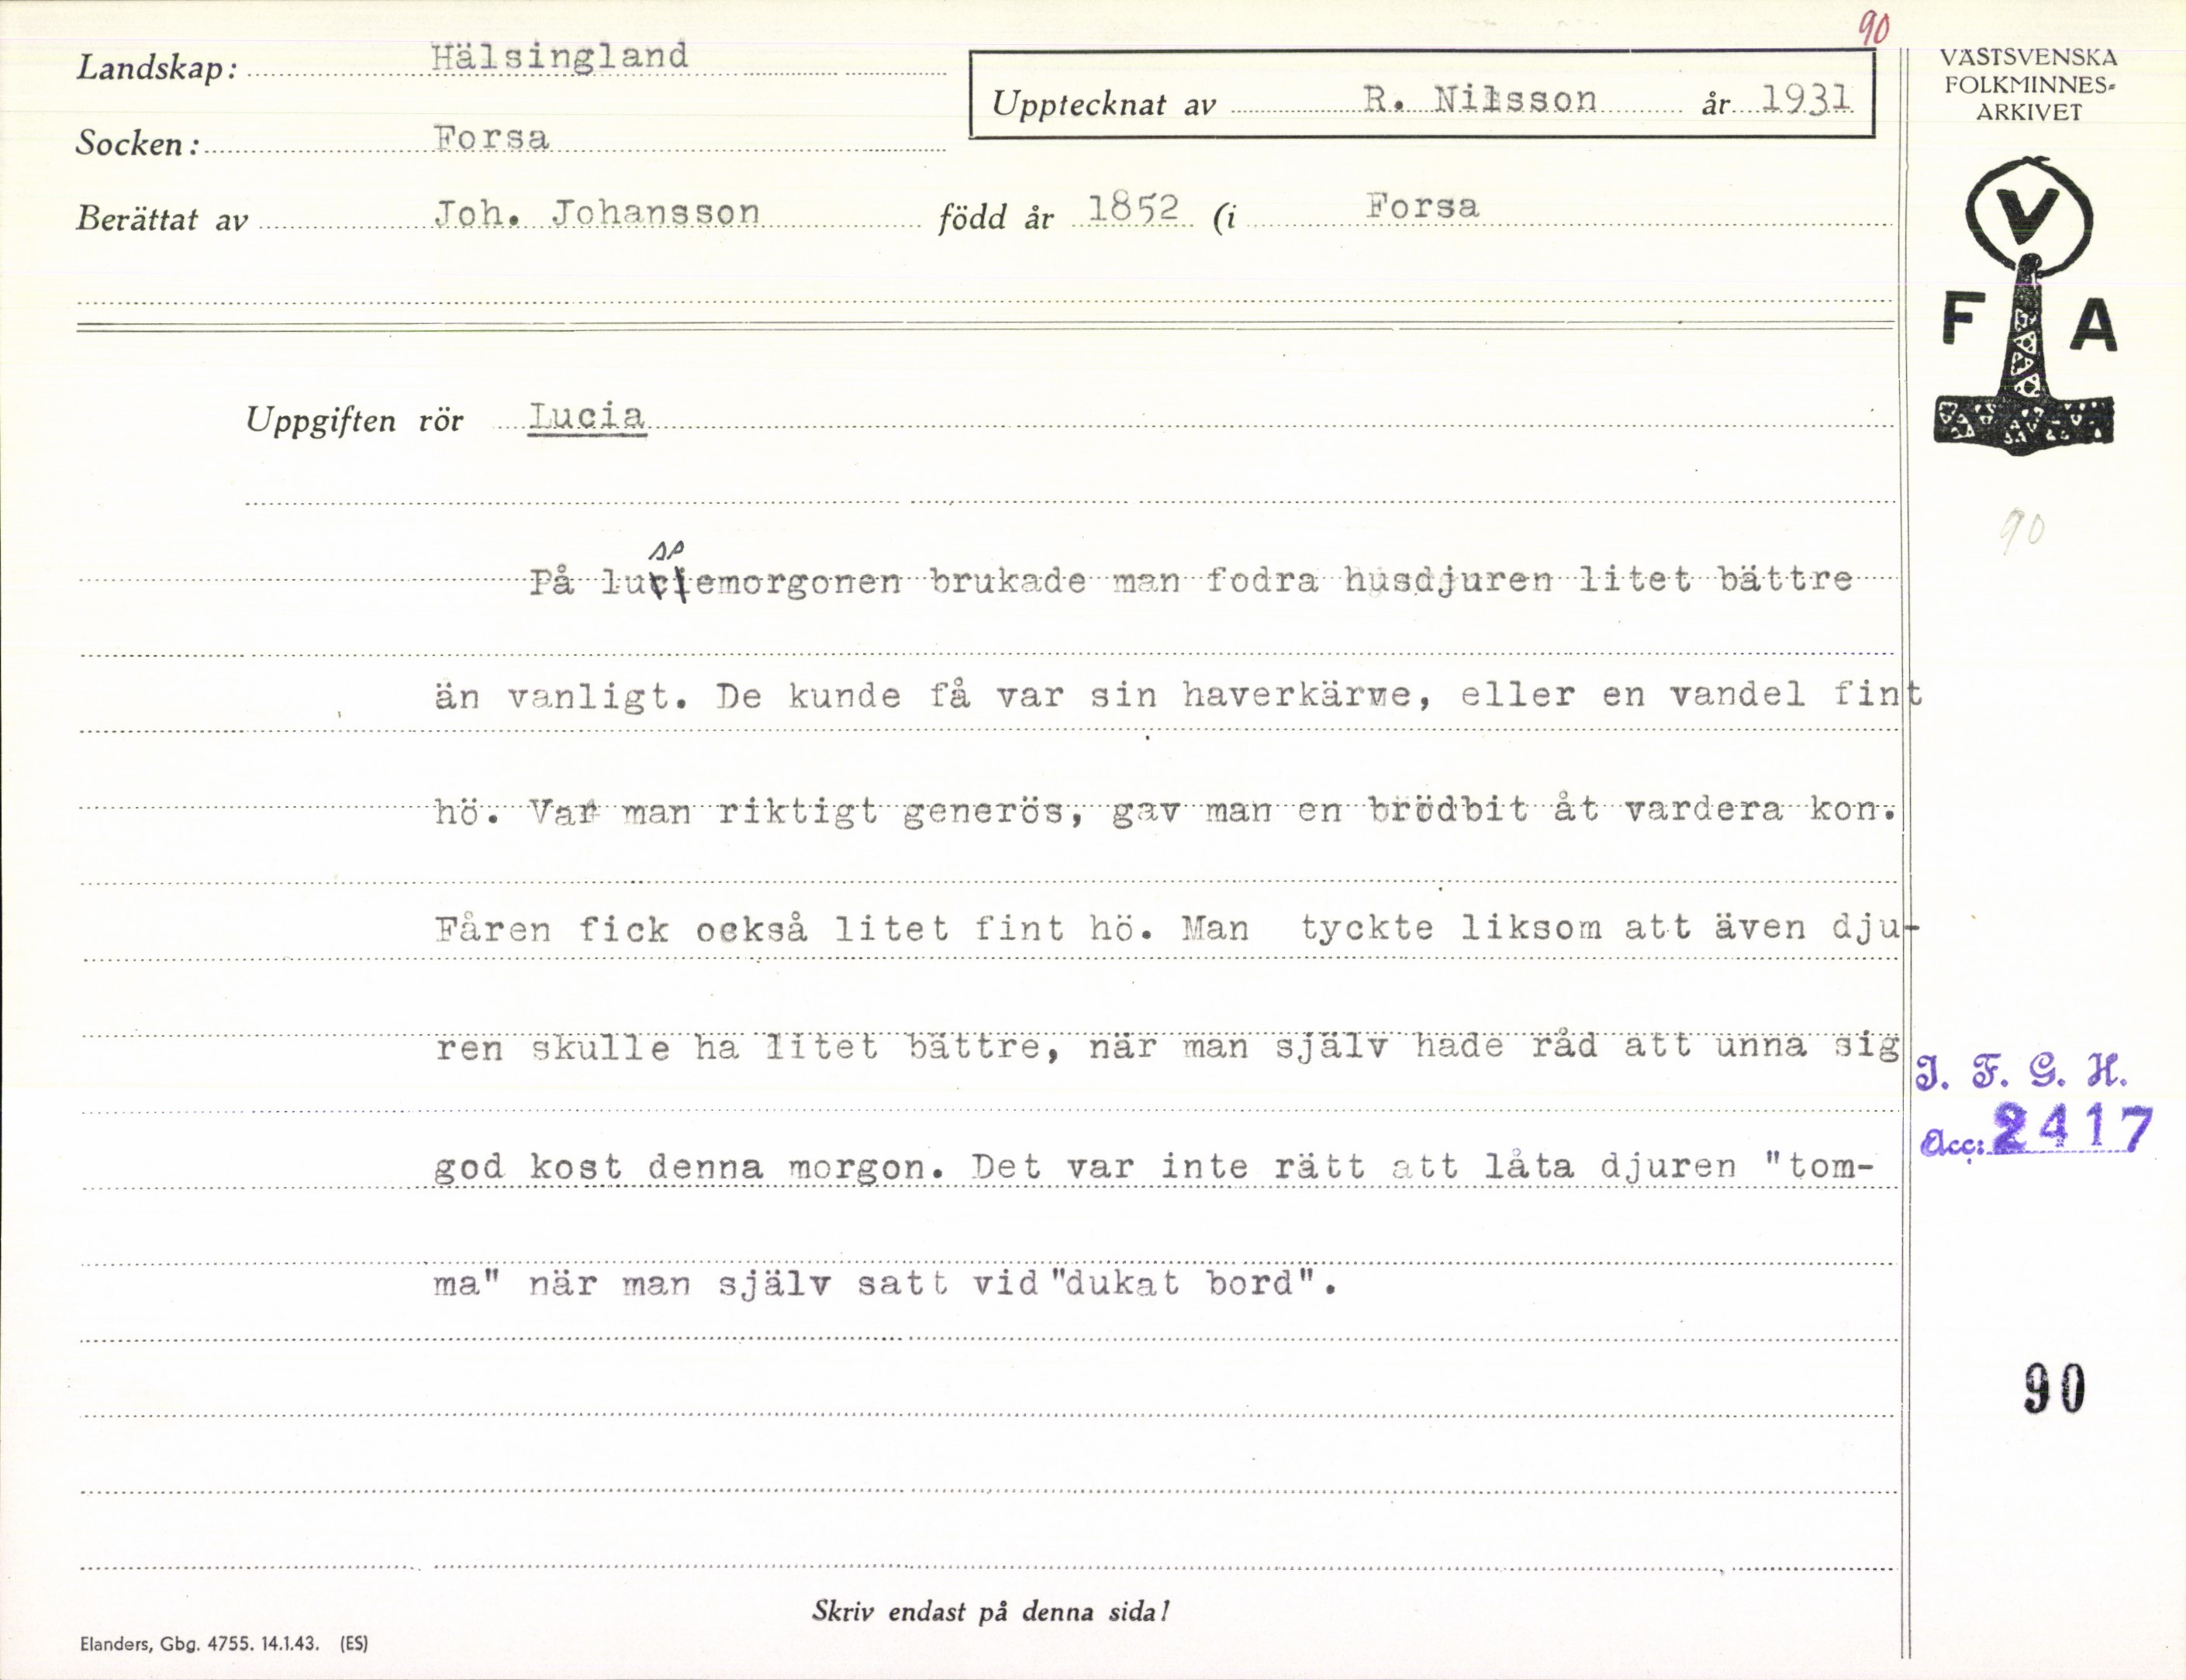 90
Landskap: Hälsingland
Upptecknat av R. Nilsson år 1931
Socken: Forsa
Berättat av Joh. Johansson född år 1852 (i Forsa
VÄSTSVENSKA
FOLKMINNES-
ARKIVET
V
F A
Uppgiften rör Lucia
90
På luciemorgonen brukade man fodra husdjuren litet bättre
än vanligt. De kunde få var sin haverkärve, eller en vandel fint
hö. Var man riktigt generös, gav man en brödbit åt vardera kon.
Fåren fick också litet fint hö. Man tyckte liksom att även dju-
ren skulle ha litet bättre, när man själv hade råd att unna sig
god kost denna morgon. Det var inte rätt att låta djuren "tom-
ma" när man själv satt vid "dukat bord".
I. F. G. H.
Acc: 2417
90
Skriv endast på denna sida!
Elanders, Gbg. 4755. 14.1.43. (ES)